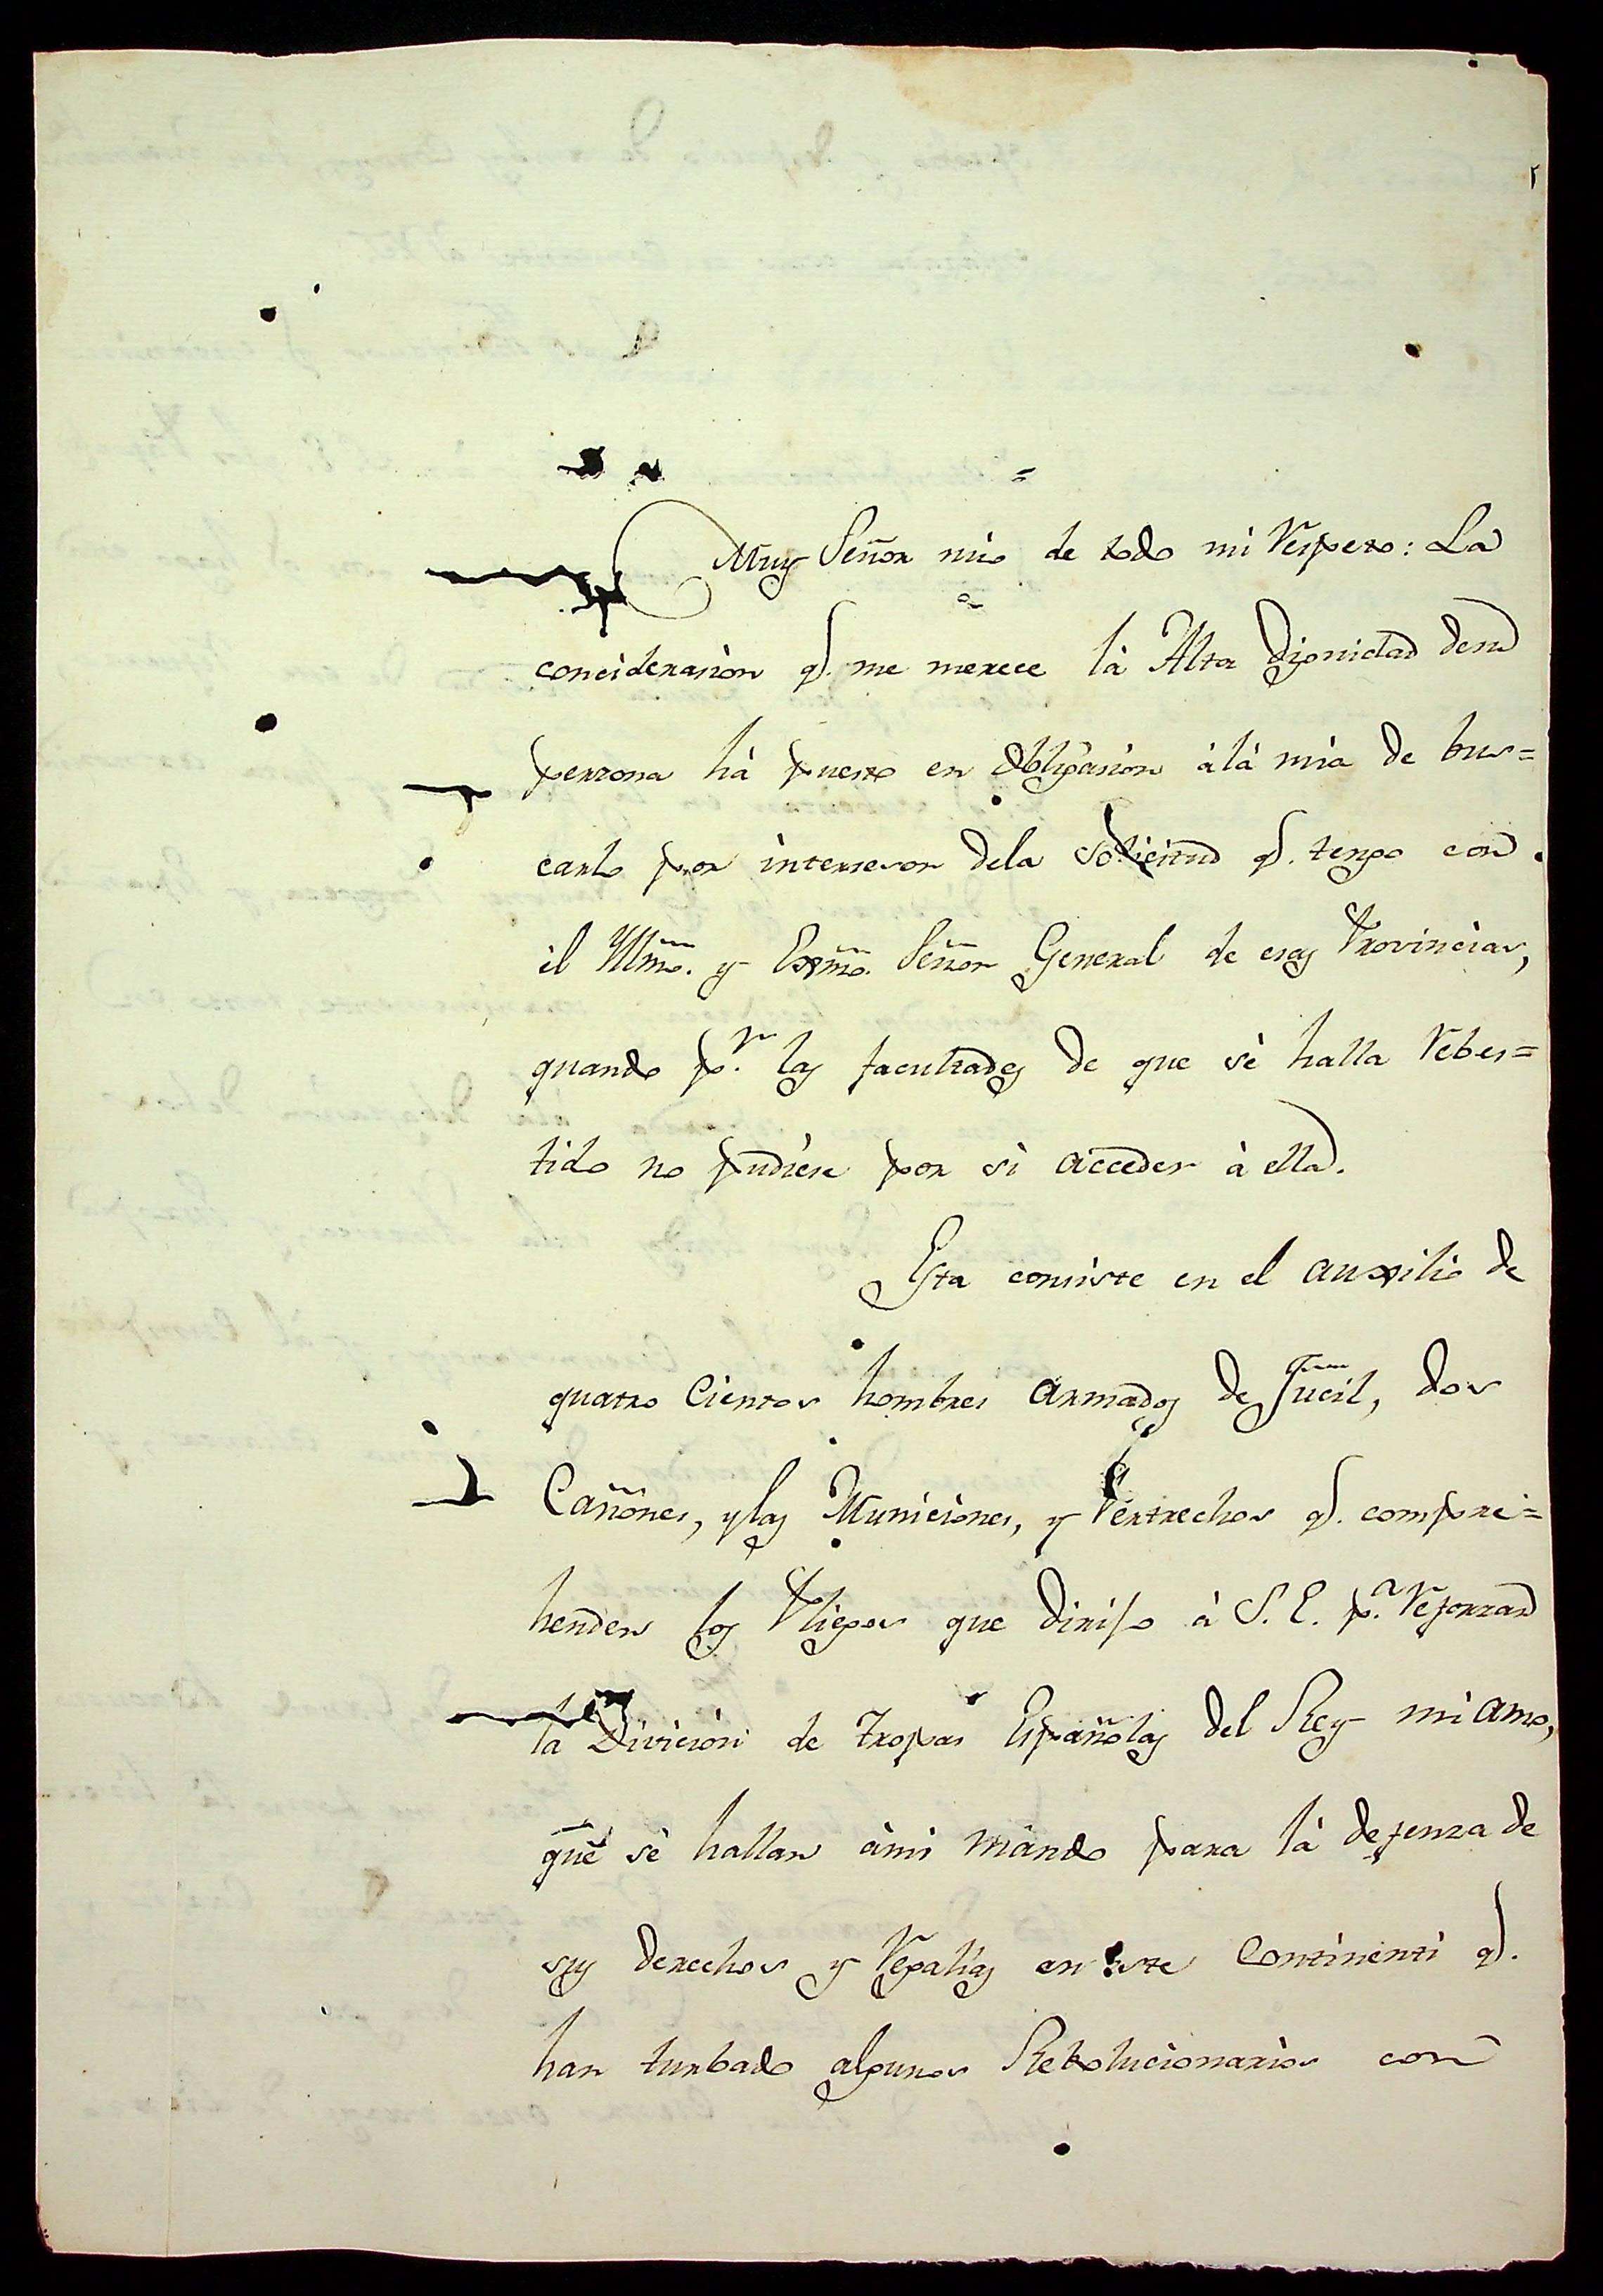 Muy Señor mio de todo mi Respeto: La
concideracion q.e me merece là Alta Dignidad de su
perzona hà puesto en obligacion à là mia de bus=
carlo por intersesor de la Solicitud q.e tengo con
el Yllmo. y Exmo. Señor General de esas Provincias,
quando p.r las facultades de que sè halla Rebes=
tido no pudiese por si acceder à ella.
Esta consiste en el auxilio de
quatro Cientos hombres armados de Fucil, dos
Cañones, y las Municiones, y Pertrechos q.e compre=
henden los Pliegos que dirijo à S. E. p.a Reforzar
la Divicion de tropas Españolas del Rey mi amo,
que sè hallan à mi mando para là defenza de
sus derechos y Regalias en este Continenti q.e
han turbado algunos Rebolucionarios con